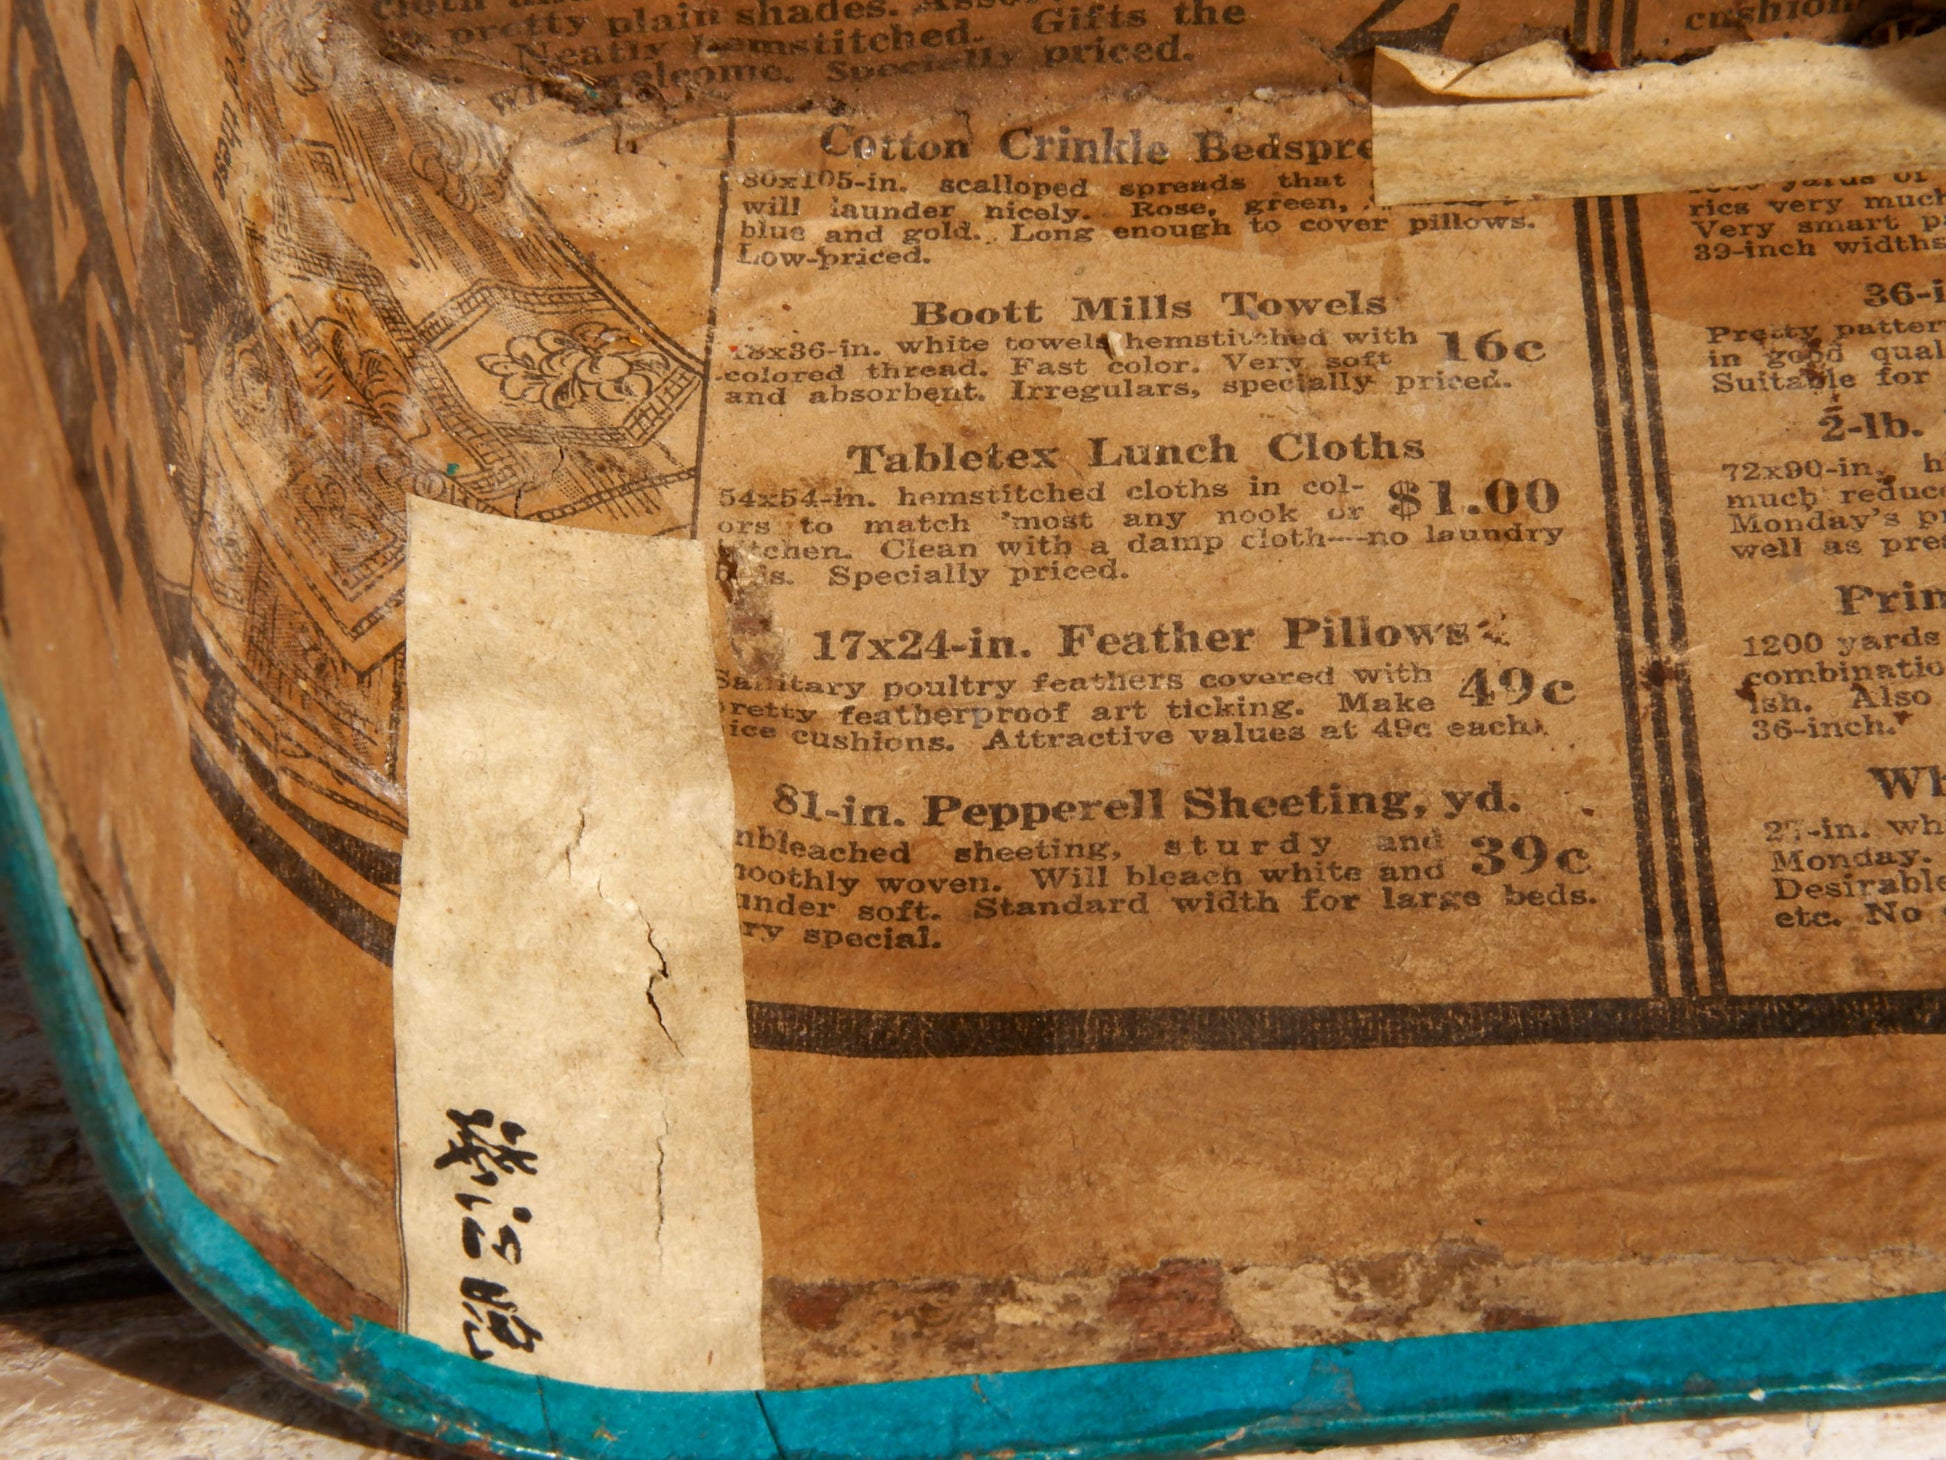 pretty plain shades.
Neatly hemstitched. Gifts the
welcome. Specially priced.
of these
Cotton Crinkle Bedspre
80x105-in. scalloped spreads that
will launder nicely. Rose, green,
blue and gold. Long enough to cover pillows.
Low-priced.
Boott Mills Towels
18x36-in. white towels hemstitched with
colored thread. Fast color. Very soft
16c
and absorbent. Irregulars, specially priced.
Tabletex Lunch Cloths
54x54-in. hemstitched cloths in col-
ors to match 'most any nook or
$1.00
kitchen. Clean with a damp cloth---no laundry
Specially priced.
17x24-in. Feather Pillows
Sanitary poultry feathers covered with
retty featherproof art ticking. Make
49c
ice cushions. Attractive values at 49c each.
81-in. Pepperell Sheeting, yd.
nbleached sheeting, sturdy and
moothly woven. Will bleach white and
39c
under soft. Standard width for large beds.
ry special.
cushion
yards of
rics very much
Very smart p
39-inch widths
36-i
Pretty patter
in good qual
Suitable for
2-lb.
72x90-in. h
much reduc
Monday's p
well as pre
Prin
1200 yards
combinatio
ish. Also
36-inch.
Wh
27-in. wh
Monday.
Desirable
etc. No